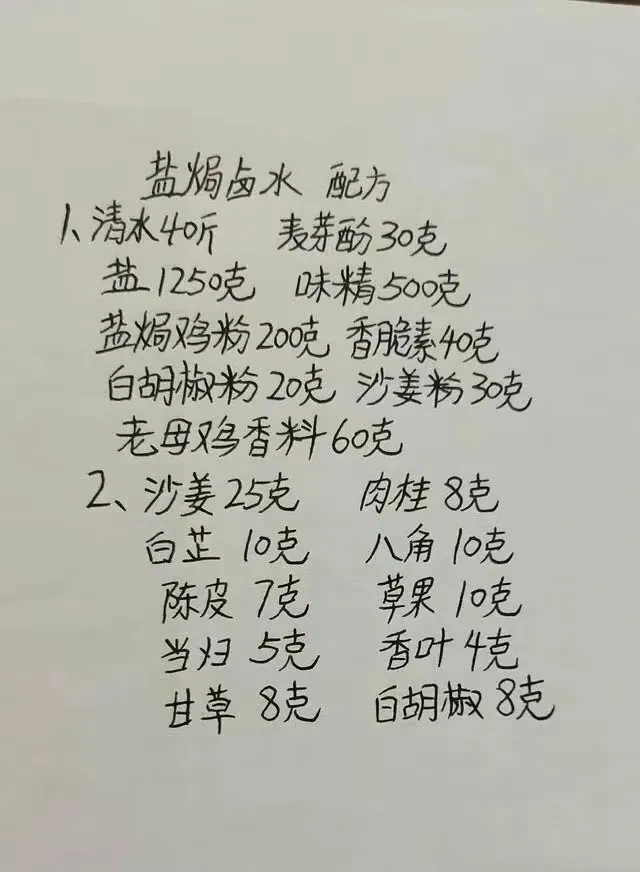 盐焗卤水 配方
1、清水40斤 麦芽酚30克
盐1250克 味精500克
盐焗鸡粉200克 香脆素40克
白胡椒粉20克 沙姜粉30克
老母鸡香料60克
2、沙姜25克 肉桂8克
白芷10克 八角10克
陈皮7克 草果10克
当归5克 香叶4克
甘草8克 白胡椒8克